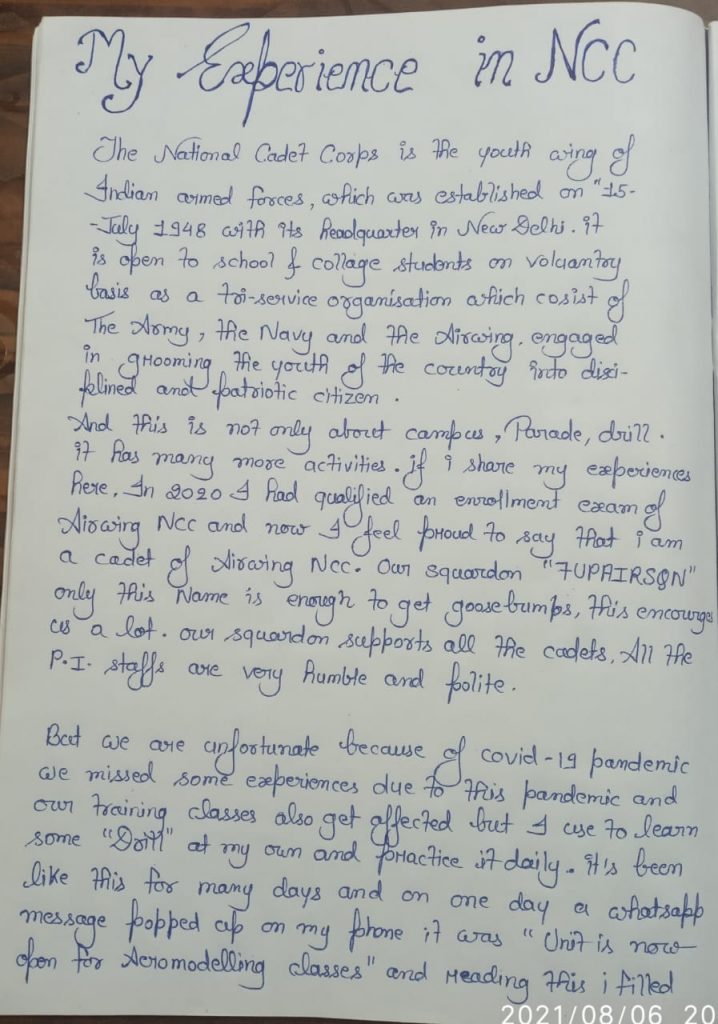 My Experience in NCC
The National Cadet Corps is the youth wing of
Indian armed forces, which was established on "15-
-July 1948 with its headquarter in New Delhi. it
is open to school & collage students on voluantry
basis as a tri-service organisation which cosist of
The Army, the Navy and the Airwing. engaged
in grooming the youth of the country into disi-
plined and patriotic citizen.
And this is not only about campus, Parade, drill.
it has many more activities. if i share my experiences
here, In 2020 I had qualified an enrollment exam of
Airwing NCC and now I feel proud to say that i am
a cadet of Airwing NCC. Our squardon "7UPAIRSQN"
only this Name is enough to get goosebumps, this encourges
us a lot. our squardon supports all the cadets, All the
P.I. staffs are very humble and polite.
But we are unfortunate because of covid-19 pandemic
we missed some experiences due to this pandemic and
our training classes also get affected but I use to learn
some "Drill" at my own and practice it daily. it's been
like this for many days and on one day a whatsapp
message popped up on my phone it was "Unit is now
open for Aeromodelling classes" and reading this i filled
2021/08/06 20